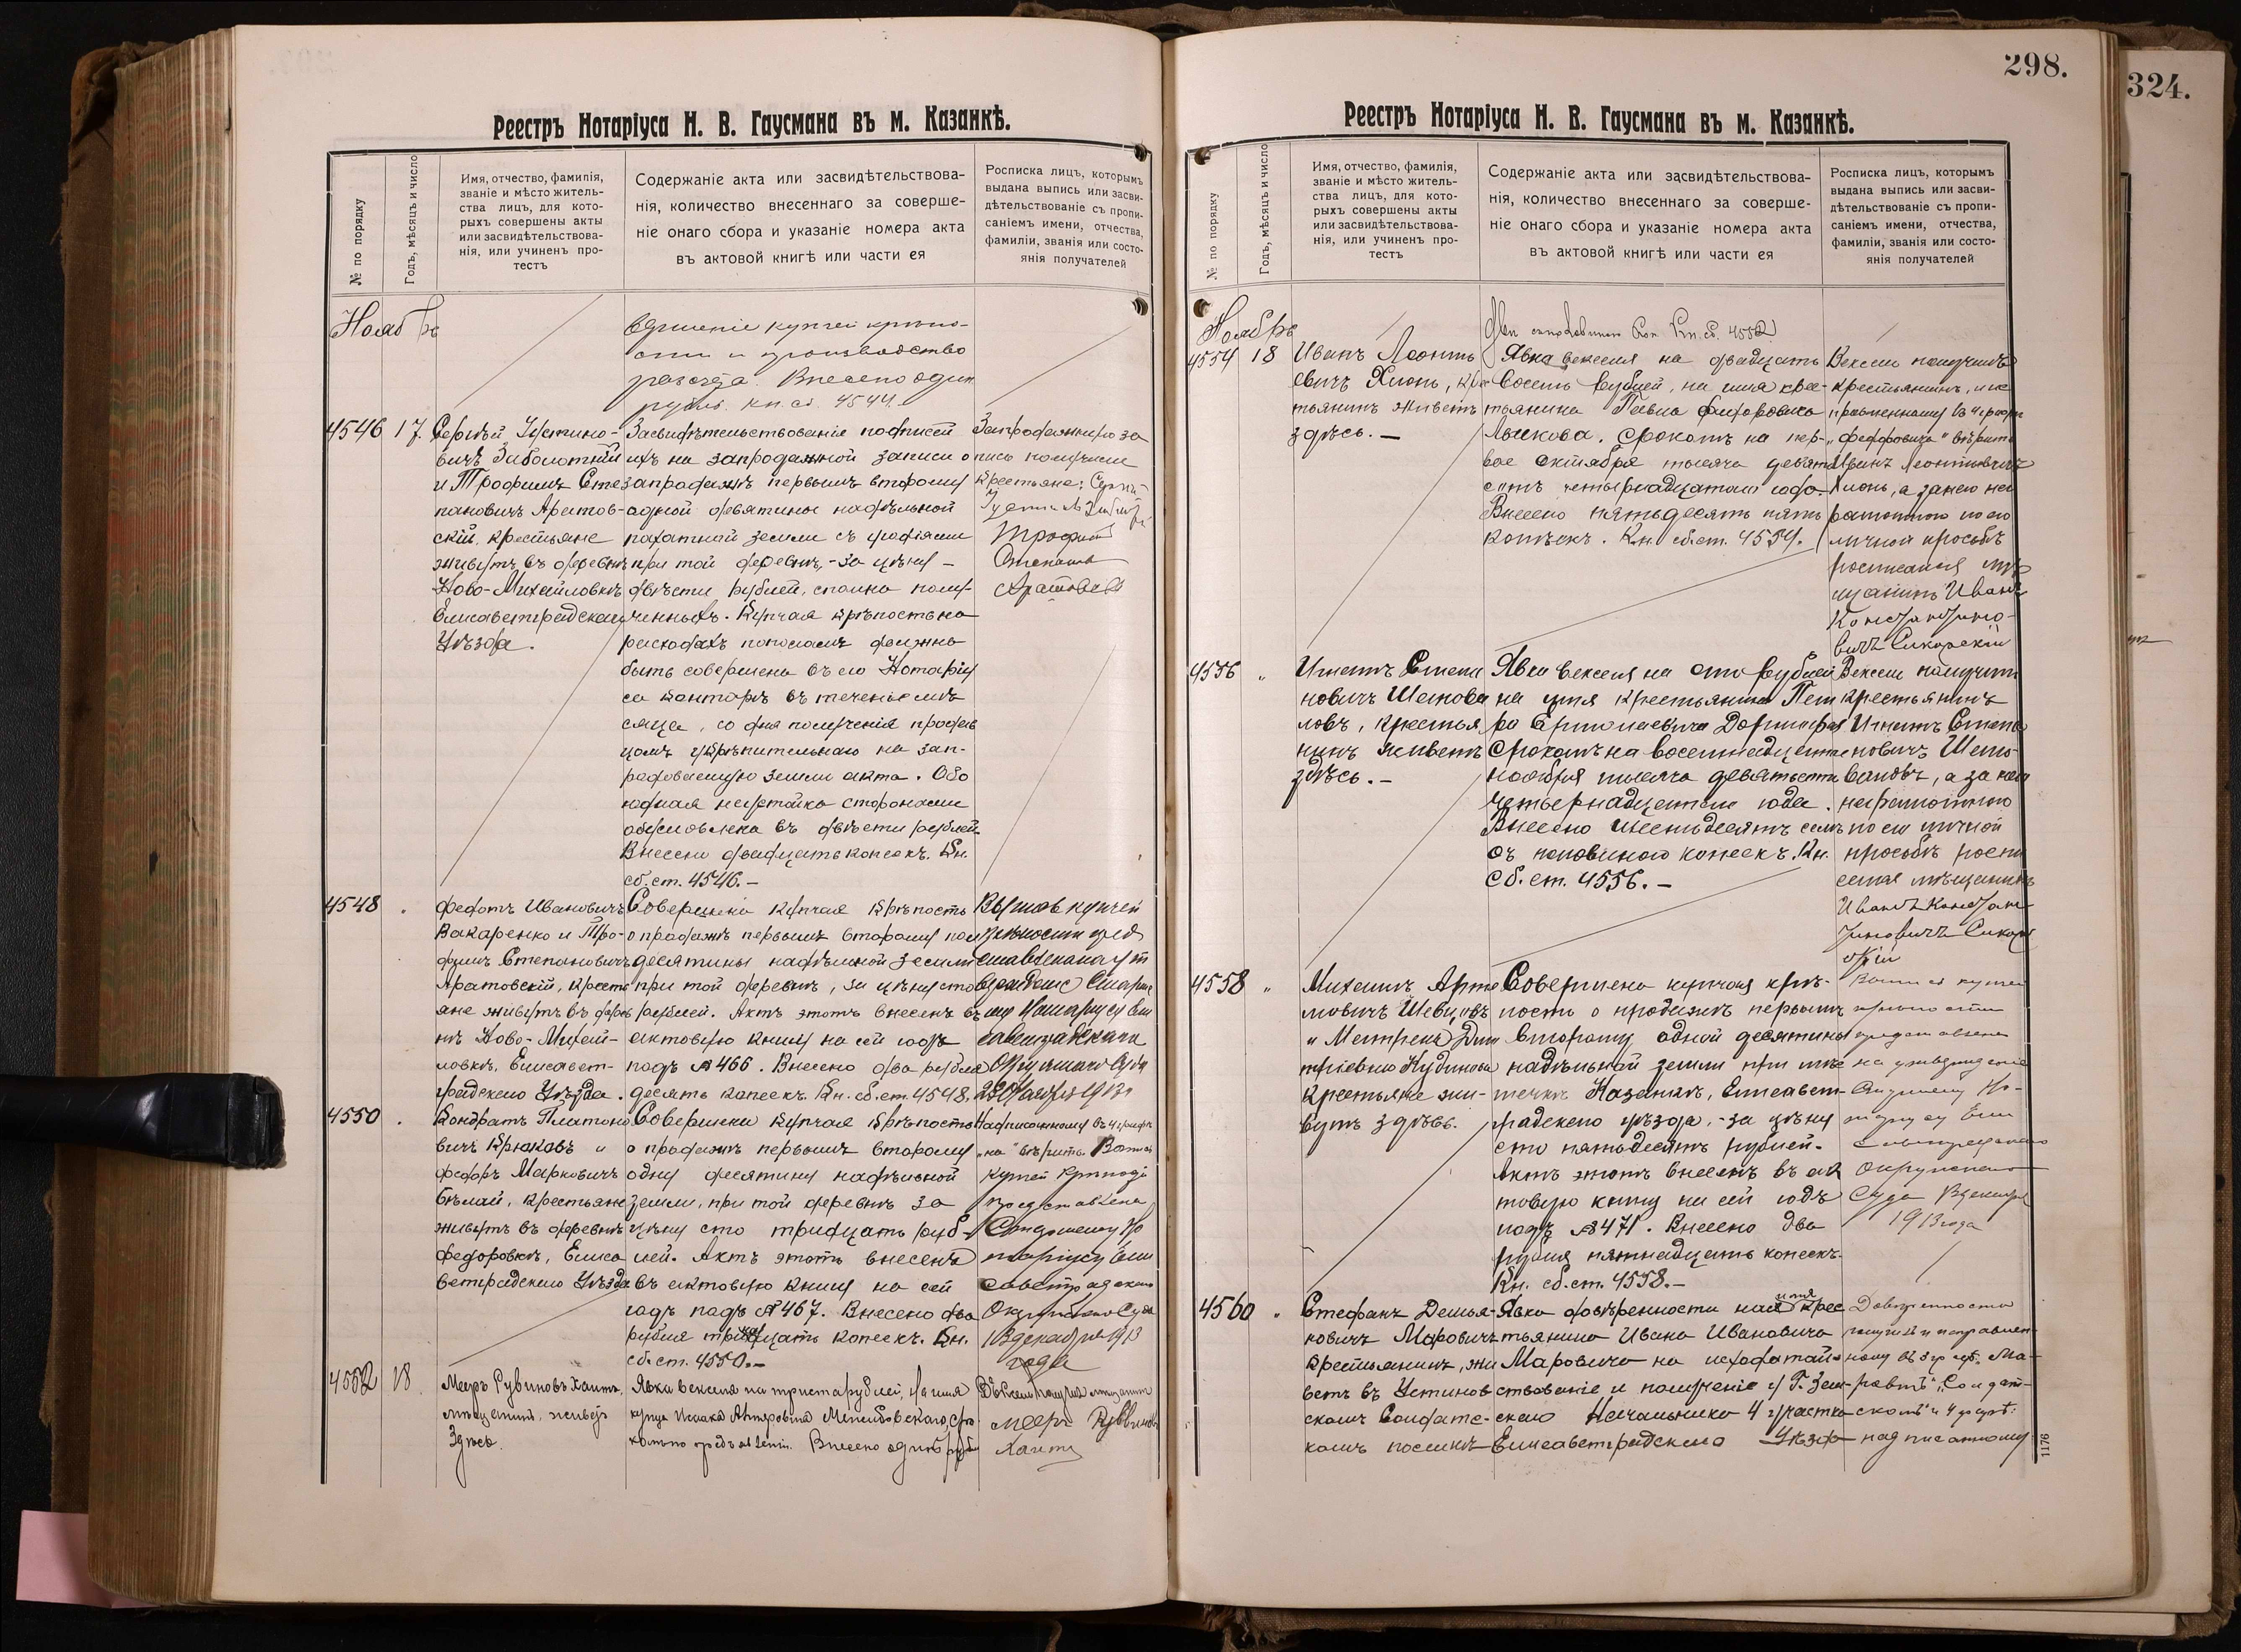 Реестръ Нотаріуса Н. В. Гаусмана въ м. Казанкѣ.
№ по порядку
Годъ, мѣсяцъ и число
Имя, отчество, фамилія,
званіе и мѣсто житель-
ства лицъ, для кото-
рыхъ совершены акты
или засвидѣтельствова-
нія, или учиненъ про-
тестъ
Содержаніе акта или засвидѣтельствова-
нія, количество внесеннаго за соверше-
ніе онаго сбора и указаніе номера акта
въ актовой книгѣ или части ея
Росписка лицъ, которымъ
выдана выпись или засви-
дѣтельствованіе съ пропи-
саніемъ имени, отчества,
фамиліи, званія или состо-
янія получателей
Ноябрь
вершеніе купчей крѣпо-
сти и производство
разсчета. Внесено одинъ
рубль. Кн. сб. 4544.
4546 17
Сергѣй Устино-
вичъ Заболотній
и Трофимъ Сте-
пановичъ Аратов-
скій, крестьяне
живутъ въ деревнѣ
Ново-Михайловкѣ
Елисаветградскаго
Уѣзда.
Засвидѣтельствованіе подписей
ихъ на запродажной записи о
запродажѣ первымъ второму
одной десятины надѣльной
пахатной земли съ
при той деревнѣ, - за цѣну -
двѣсти рублей, сполна полу-
ченныхъ. Купчая крѣпость на
расходахъ пополамъ должна
быть совершена въ его Нотаріу
са конторѣ въ теченіе мѣ
сяца, со дня полученія продав
цомъ укрѣпительнаго на зап-
родаваемую землю акта. Обо
юдная неустойка сторонами
обусловлена въ двѣсти рублей.
Внесено двадцать копеекъ. Кн.
сб. ст. 4546.-
Запродажную за
пись получили
Крестьяне: Сергѣ
Трофимъ
Степановъ
4548
Федотъ Ивановичъ
Вакаренко и Тро-
фимъ Степановичъ
Аратовскій, кресть
яне живутъ въ дерев
нѣ Ново-Михай-
ловкѣ, Елисавет-
градскаго Уѣзда.
Совершена купчая крѣпость
о продажѣ первымъ второму пол
десятины надѣльной земли
при той деревнѣ, за цѣну сто
рублей. Актъ этотъ внесенъ въ
актовую книгу на сей годъ
подъ № 466. Внесено два рубля
десять копеекъ. Кн. сб. ст. 4548.
Выпись купчей
крѣпости пред
ставлена на ут
вержденіе Старше
му Нотаріусу Ели
саветградскаго
Окружнаго Суда
1913 г
4550
Кондратъ Платоно
вичъ Крюковъ и
Федоръ Марковичъ
Бѣлай, крестьяне
живутъ въ деревнѣ
Федоровкѣ, Елиса
ветградскаго Уѣзда
Совершена купчая крѣпость
о продажѣ первымъ второму
одну десятину надѣльной
земли, при той деревнѣ за
цѣну сто тридцать руб-
лей. Актъ этотъ внесенъ
въ актовую книгу на сей
годъ подъ № 467. Внесено два
рубля тринадцать копеекъ. Кн.
сб. ст. 4550.-
Надписанному въ 4 графѣ
"на" вѣрить. Выпись
купчей крѣпости
представлена
Старшему Но
таріусу Ели
саветградскаго
Окружнаго Суда
декабря 1913
года
4552 18.
Мееръ Рувиновъ Хаитъ,
мѣщанинъ, живетъ
здѣсь.
Явка векселя на триста рублей, на имя
купца Исаака
по предъявленіи. Внесено одинъ рубль
Вексель получилъ мѣщанинъ
Мееръ Рувиновъ
Хаитъ
298.
324.
Реестръ Нотаріуса Н. В. Гаусмана въ м. Казанкѣ.
№ по порядку
Годъ, мѣсяцъ и число
Имя, отчество, фамилія,
званіе и мѣсто житель-
ства лицъ, для кото-
рыхъ совершены акты
или засвидѣтельствова-
нія, или учиненъ про-
тестъ
Содержаніе акта или засвидѣтельствова-
нія, количество внесеннаго за соверше-
ніе онаго сбора и указаніе номера акта
въ актовой книгѣ или части ея
Росписка лицъ, которымъ
выдана выпись или засви-
дѣтельствованіе съ пропи-
саніемъ имени, отчества,
фамиліи, званія или состо-
янія получателей
Ноябрь
Кн. сб. 4552
4554 18
Иванъ Леонть
евичъ Хионь, кре
тьянинъ живетъ
здѣсь.-
Явка векселя на двадцать
восемь рублей, на имя крес-
тьянина Павла Федоровича
Лыскова. Срокомъ на пер-
вое октября тысяча девять
сотъ четырнадцатаго года.
Внесено пятьдесятъ пять
копѣекъ. Кн. сб. ст. 4554.
Вексель получилъ
крестьянинъ, ис
правленному въ 4 графѣ
"Федоровича" вѣрить
Иванъ Леонтьевичъ
Хионь, а за него не
грамотнаго по его
личной просьбѣ
росписался мѣ
щанинъ Иванъ
Константино-
вичъ Сикорскій
4556 "
Игнатъ Степа
новичъ Шепова
ловъ, крестья
нинъ живетъ
здѣсь.-
Явка векселя на сто рублей
на имя крестьянина Пет
ра Ермолаевича
Срокомъ на восемнадцатое
ноября тысяча девятьсотъ
четырнадцатаго года.
Внесено шестьдесятъ семь
съ половиною копеекъ. Кн.
Сб. ст. 4556.-
Вексель получилъ
крестьянинъ
Игнатъ Степа
новичъ Шепо
валовъ, а за него
неграмотнаго
по его личной
просьбѣ роспи
сался мѣщанинъ
Иванъ Констан
тиновичъ Сикор
скій
4558 "
Михаилъ Арте
мовичъ Шевцовъ
и Матрена Дми
тріевна Кудинова
крестьяне жи-
вутъ здѣсь.
Совершена купчая крѣ-
пость о продажѣ первымъ
второму одной десятины
надѣльной земли при мѣс
течкѣ Казанкѣ, Елисавет-
градскаго уѣзда, - за цѣну
сто пятьдесятъ рублей.
Актъ этотъ внесенъ въ ак
товую книгу на сей годъ
подъ № 471. Внесено два
рубля пятнадцать копеекъ.
Кн. сб. ст. 4558.-
Выпись купчей
крѣпости
представлена
на утвержденіе
Старшему Но-
таріусу Ели
саветградскаго
Окружнаго
Суда декабря
1913 года
4560 "
Стефанъ Демья-
новичъ Маровичъ
крестьянинъ, жи
ветъ въ Устинов
скомъ Солдатс-
комъ поселкѣ
Явка довѣренности на имя крес
тьянина Ивана Ивановича
Маровича на исходатай-
ствованіе и полученіе у Г. Зем-
скаго Начальника 4 участка
Елисаветградскаго Уѣзда
Довѣренность
получилъ и исправлен-
ному въ 3 граф. "Ма-
ровичъ", "Солдат-
скомъ" и 4 графѣ:
надписанному
1176